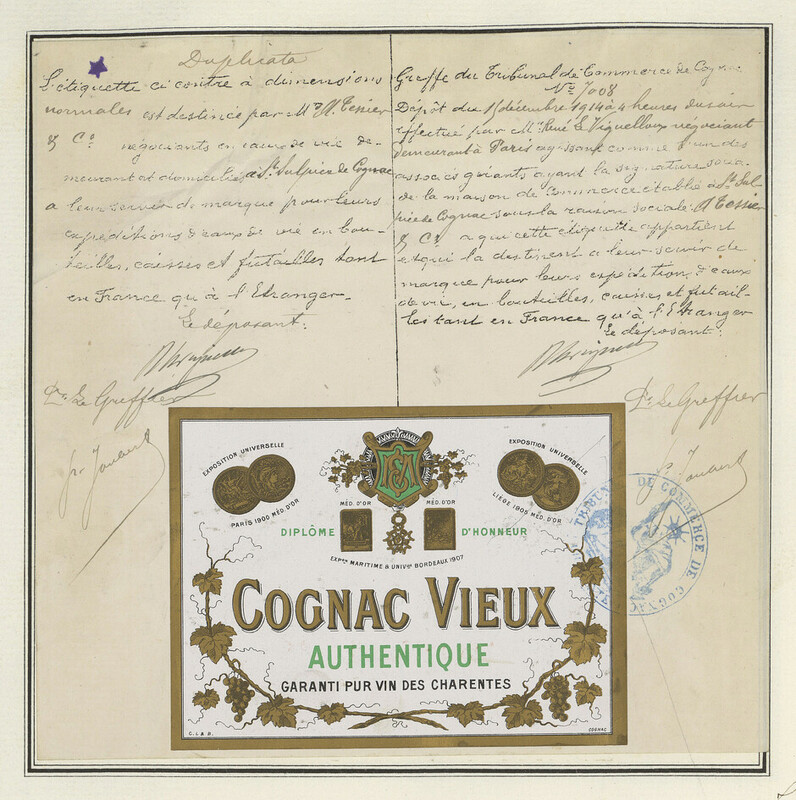 Duplicata
L'étiquette ci contre à dimensions
normales est destinée par Mrs Tessier
& Co négociants en eaux de vie de-
meurant et domiciliés à St Sulpice de Cognac
a leur servir de marque pour leurs
expéditions d'eaux de vie en bou-
teilles, caisses et futailles tant
en France qu'à l'Etranger.
Le déposant:
Pr Le Greffier
Greffe du Tribunal de Commerce de Cognac
No 7008
Dépôt du 15 décembre 1914 à 4 heures du soir
effectué par Mr René Le Viguelloux négociant
demeurant à Paris agissant comme l'un des
associés gérants ayant la signature socia-
le de la maison de Commerce établie à St Sul-
pice de Cognac sous la raison sociale Tessier
& Co a qui cette étiquette appartient
et qui la destinent a leur servir de
marque pour leurs expéditions d'eaux
de vie, en bouteilles, caisses et futail-
les tant en France qu'à l'Etranger
Le déposant:
Pr Le Greffier
EXPOSITION UNIVERSELLE
PARIS 1900 MÉD. D'OR
EXPOSITION UNIVERSELLE
LIÈGE 1905 MÉD. D'OR
MÉD. D'OR
MÉD. D'OR
DIPLÔME D'HONNEUR
EXPon MARITIME & UNIVlle BORDEAUX 1907
COGNAC VIEUX
AUTHENTIQUE
GARANTI PUR VIN DES CHARENTES
C. L. & B.
COGNAC
TRIBUNAL DE COMMERCE DE COGNAC